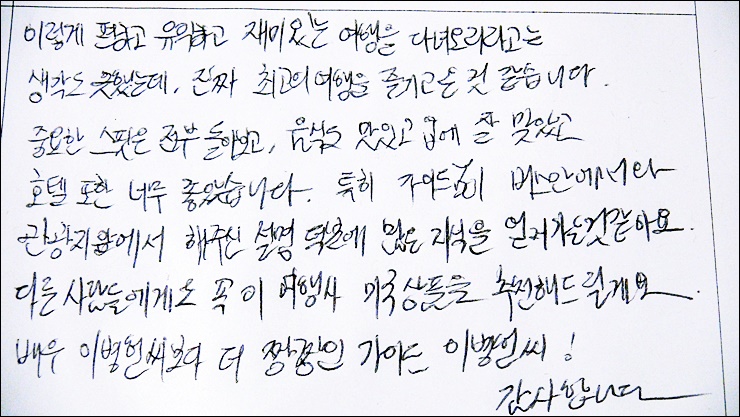 이렇게 편하고 유익하고 재미있는 여행을 다녀오리라고는
생각도 못했는데, 진짜 최고의 여행을 즐기고 온 것 같습니다.
중요한 스팟은 전부 돌아보고, 음식도 맛있고 입에 잘 맞았고
호텔 또한 너무 좋았습니다. 특히 가이드님이 버스안에서와
관광지앞에서 해주신 설명 덕분에 많은 지식을 얻어가는것같아요.
다른 사람들에게도 꼭 이 여행사 미국상품을 추천해드릴게요.
배우 이병헌씨보다 더 짱짱인 가이드 이병헌씨!
감사합니다